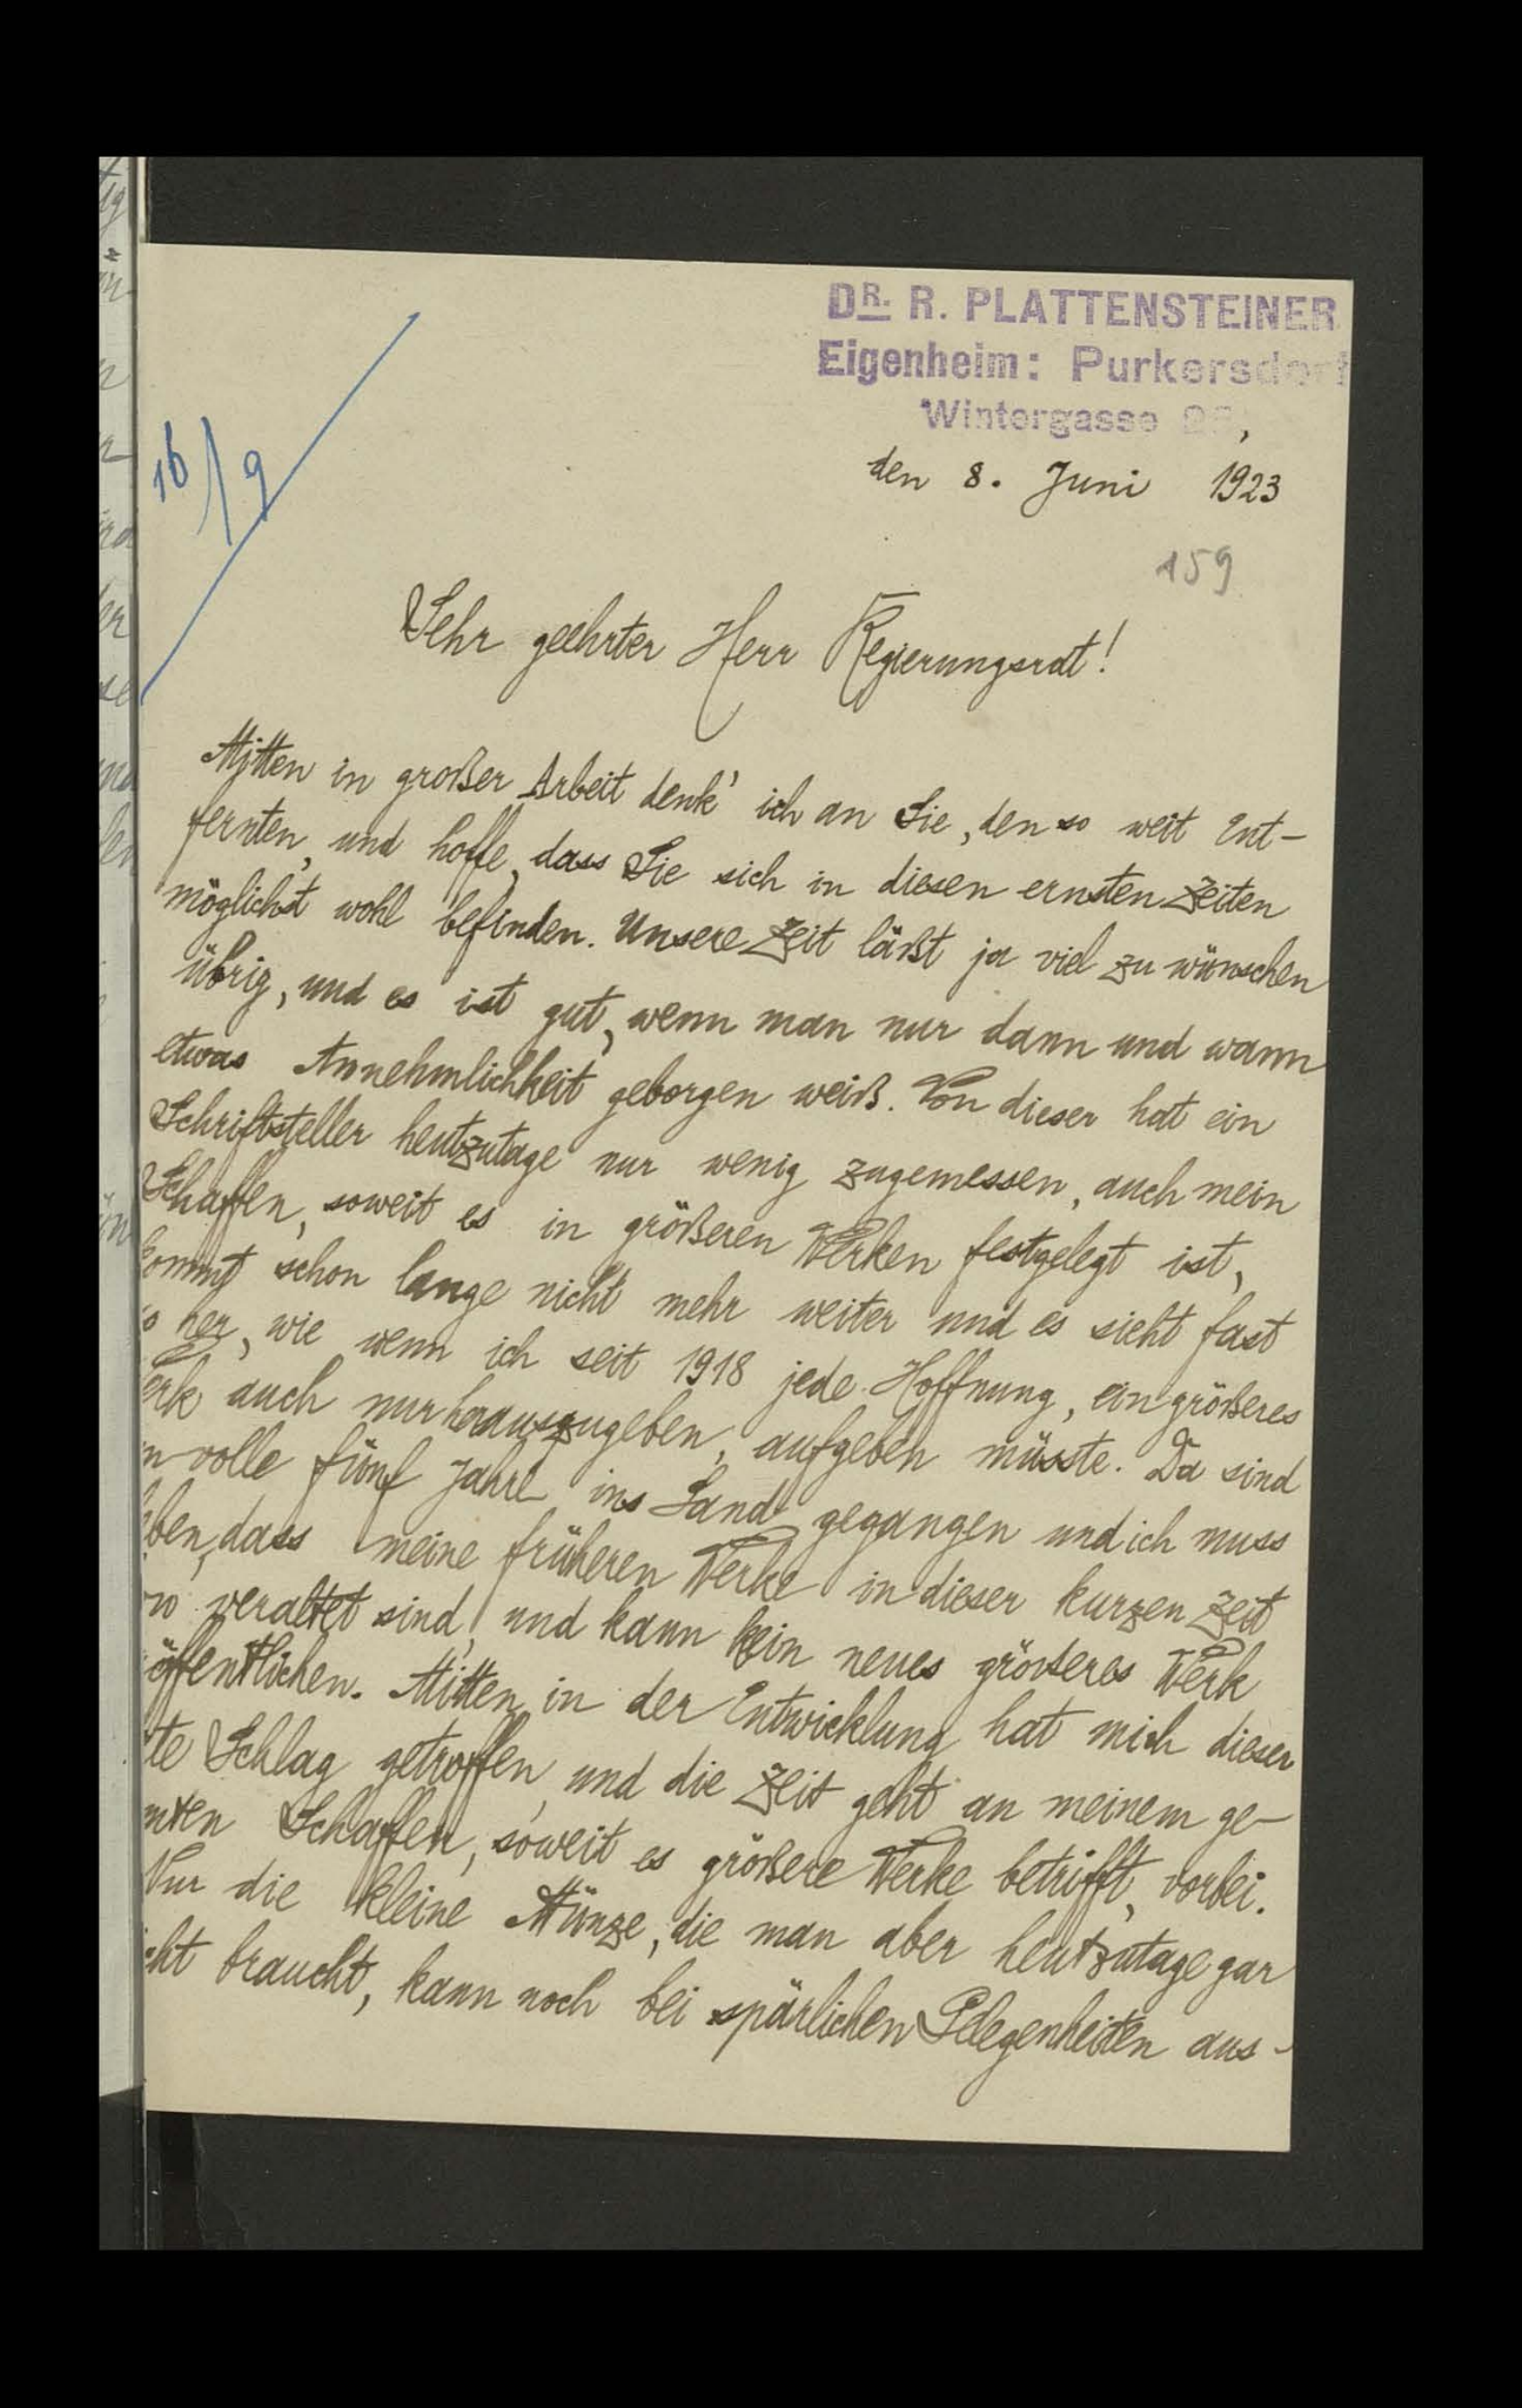 DR. R. PLATTENSTEINER
Eigenheim: Purkersdorf
Wintergasse
den 8. Juni 1923
16/9
159
Sehr geehrter Herr Regierungsrat!
Mitten in großer Arbeit denk' ich an Sie, den so weit Ent-
fernten, und hoffe, dass Sie sich in diesen ernsten Zeiten
möglichst wohl befinden. Unsere Zeit läßt ja viel zu wünschen
übrig, und es ist gut, wenn man nur dann und wann
etwas Annehmlichkeit geborgen weiß. Von dieser hat ein
Schriftsteller heutzutage nur wenig zugemessen, auch mein
Schaffen, soweit es in größeren Werken festgelegt ist,
kommt schon lange nicht mehr weiter und es sieht fast
so her, wie wenn ich seit 1918 jede Hoffnung, ein größeres
erk auch nur herauszugeben, aufgeben müsste. Da sind
n volle fünf Jahre ins Land gegangen und ich muss
ben, dass meine früheren Werke in dieser kurzen Zeit
so veraltet sind, und kann kein neues größeres Werk
öffentlichen. Mitten in der Entwicklung hat mich dieser
te Schlag getroffen, und die Zeit geht an meinem ge-
mten Schaffen, soweit es größere Werke betrifft, vorbei.
Nur die kleine Münze, die man aber heutzutage gar
cht braucht, kann noch bei spärlichen Gelegenheiten aus-